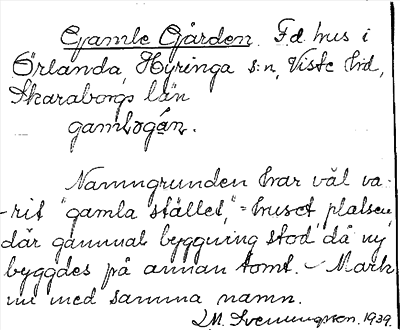 Gamle Gården. F.d. hus i
Örlanda, Hyringa s:n, Viste hd,
Skaraborgs län
gambogån.
Namngrunden har väl va-
rit "gamla stället," = huset, platsen,
där gammal byggning stod, då ny
byggdes på annan tomt. - Mark
nu med samma namn.
M. Svenungsson. 1939.